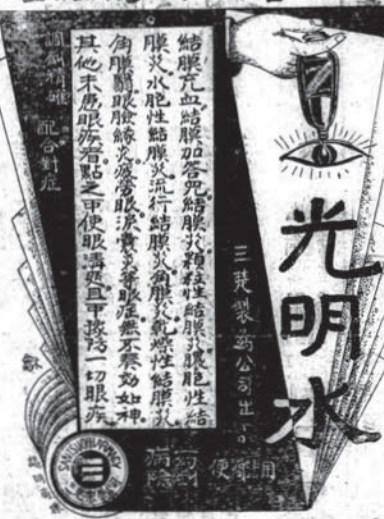 光明水
三楚製葯公司出品
結膜充血結膜加答兒結膜炎顆粒性結膜炎膿胞性結
膜炎水胞性結膜炎流行結膜炎角膜炎乾燥性結膜炎
角膜翳眼瞼緣炎疲勞眼淚囊炎等眼症無不奏効如神
其他未患眼疾者點之可使眼清爽且可預防一切眼疾
調劑精確 配合對症